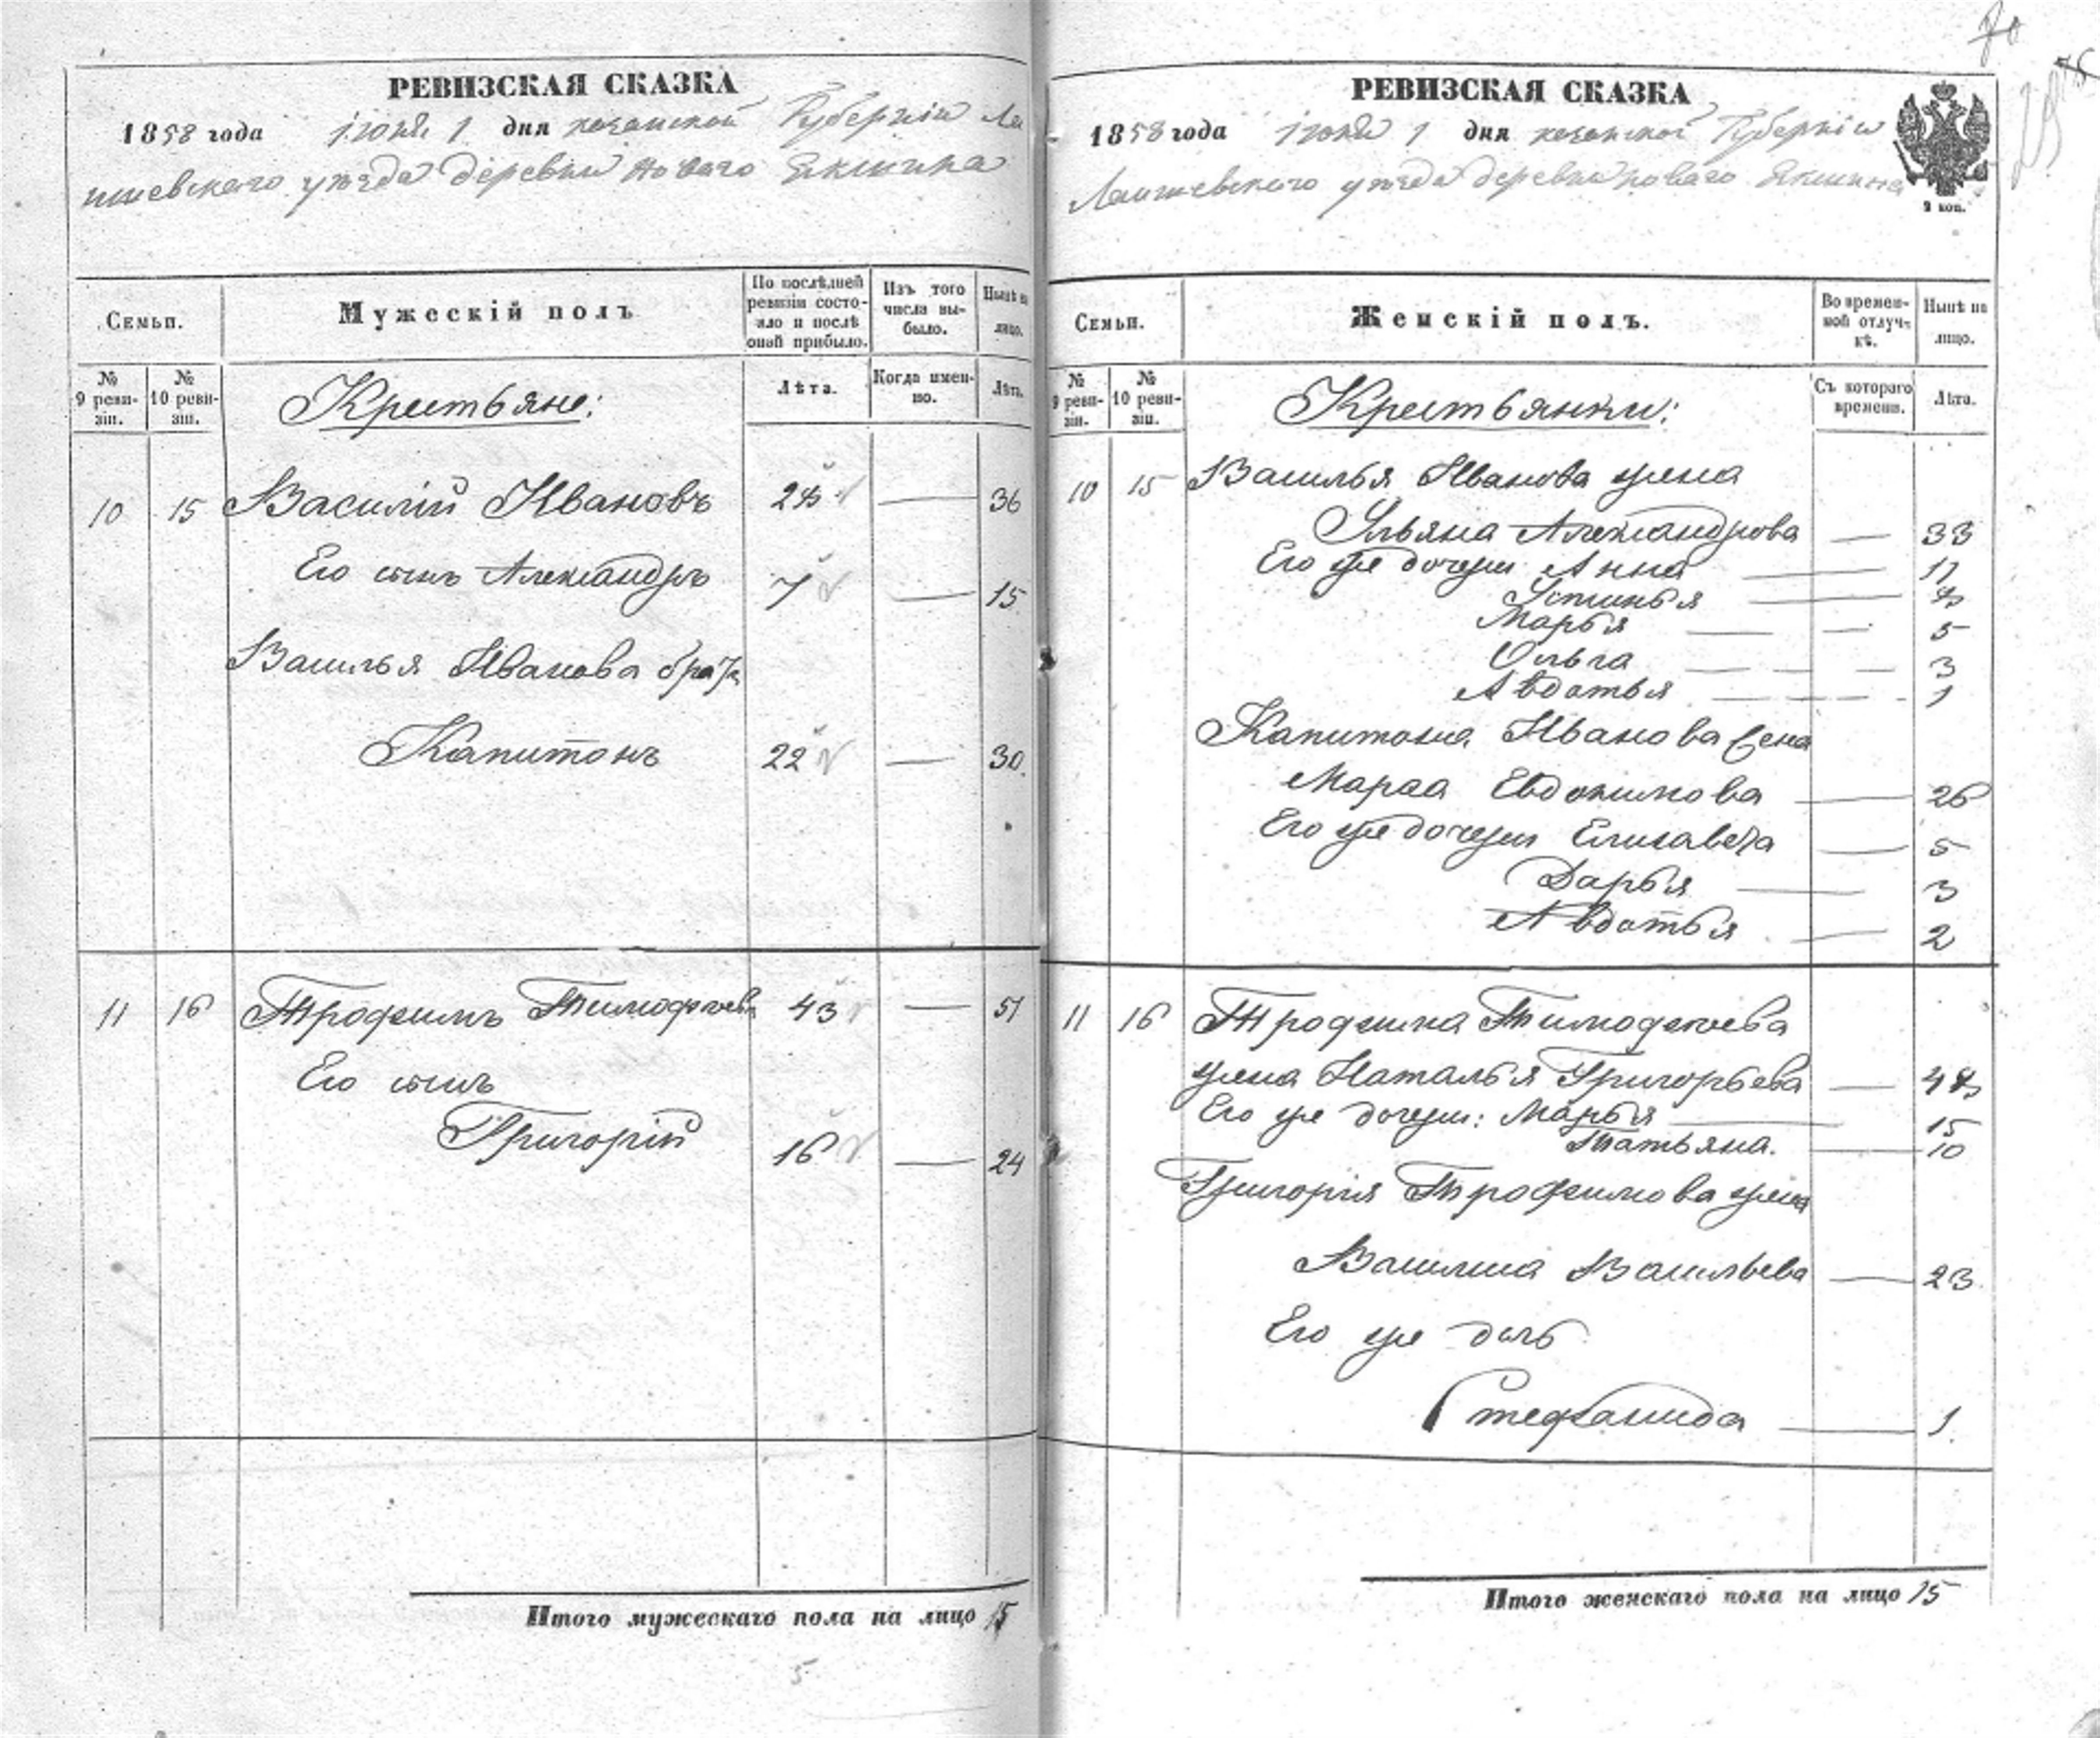 70
РЕВИЗСКАЯ СКАЗКА
1858 года іюня 1 дня казанской Губерніи Ла
ишевскаго уѣзда деревни Новаго Екшика
Семьи.
Мужескій полъ
По послѣдней ревизіи состояло и послѣ оной прибыло.
Изъ того числа выбыло.
Нынѣ на лицо.
№ 9 ревизіи.
№ 10 ревизіи.
Крестьяне:
Лѣта.
Когда именно.
Лѣта.
10 15 Василій Ивановъ 28 — 36
Его сынъ Александръ 7 — 15
Василья Иванова братъ
Капитонъ 22 — 30.
11 16 Трофимъ Тимофѣевъ 43 — 51
Его сынъ
Григорій 16 — 24
Итого мужескаго пола на лицо 5
5
РЕВИЗСКАЯ СКАЗКА
1858 года іюня 1 дня казанской Губерніи
Лаишевскаго уѣзда деревни новаго Якшика
2 коп.
Семьи.
Женскій полъ.
Во временной отлучкѣ.
Нынѣ на лицо.
№ 9 ревизіи.
№ 10 ревизіи.
Крестьянки:
Съ котораго времени.
Лѣта.
10 15 Василья Иванова жена
Ульяна Александрова — 33
Его же дочери Анна — 11
Устинья — 8
Марья — — 5
Ольга — — — 3
Авдотья — — — 1
Капитона Иванова жена
Марѳа Евдокимова — 26
Его же дочери Елисавета — 5
Дарья — 3
Авдотья — 2
11 16 Трофима Тимофѣева
жена Наталья Григорьева — 48
Его же дочери: Марья — 15
Татьяна. — 10
Григорія Трофимова жена
Василиса Васильева — 23.
Его же дочь
Стефанида — 1.
Итого женскаго пола на лицо 15